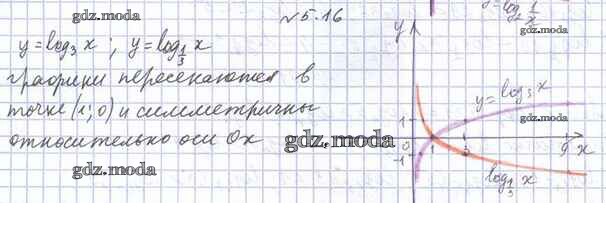 y=log₂ 1/x
№5.16
y=log₃x; y=log₁/₃x
графики пересекаются в
точке (1;0) и симметричны
относительно оси Ox
gdz.moda
gdz.moda
gdz.moda
gdz.moda
gdz.moda
y
y=log₃x
1
0
-1
1
3
9
x
log₁/₃x